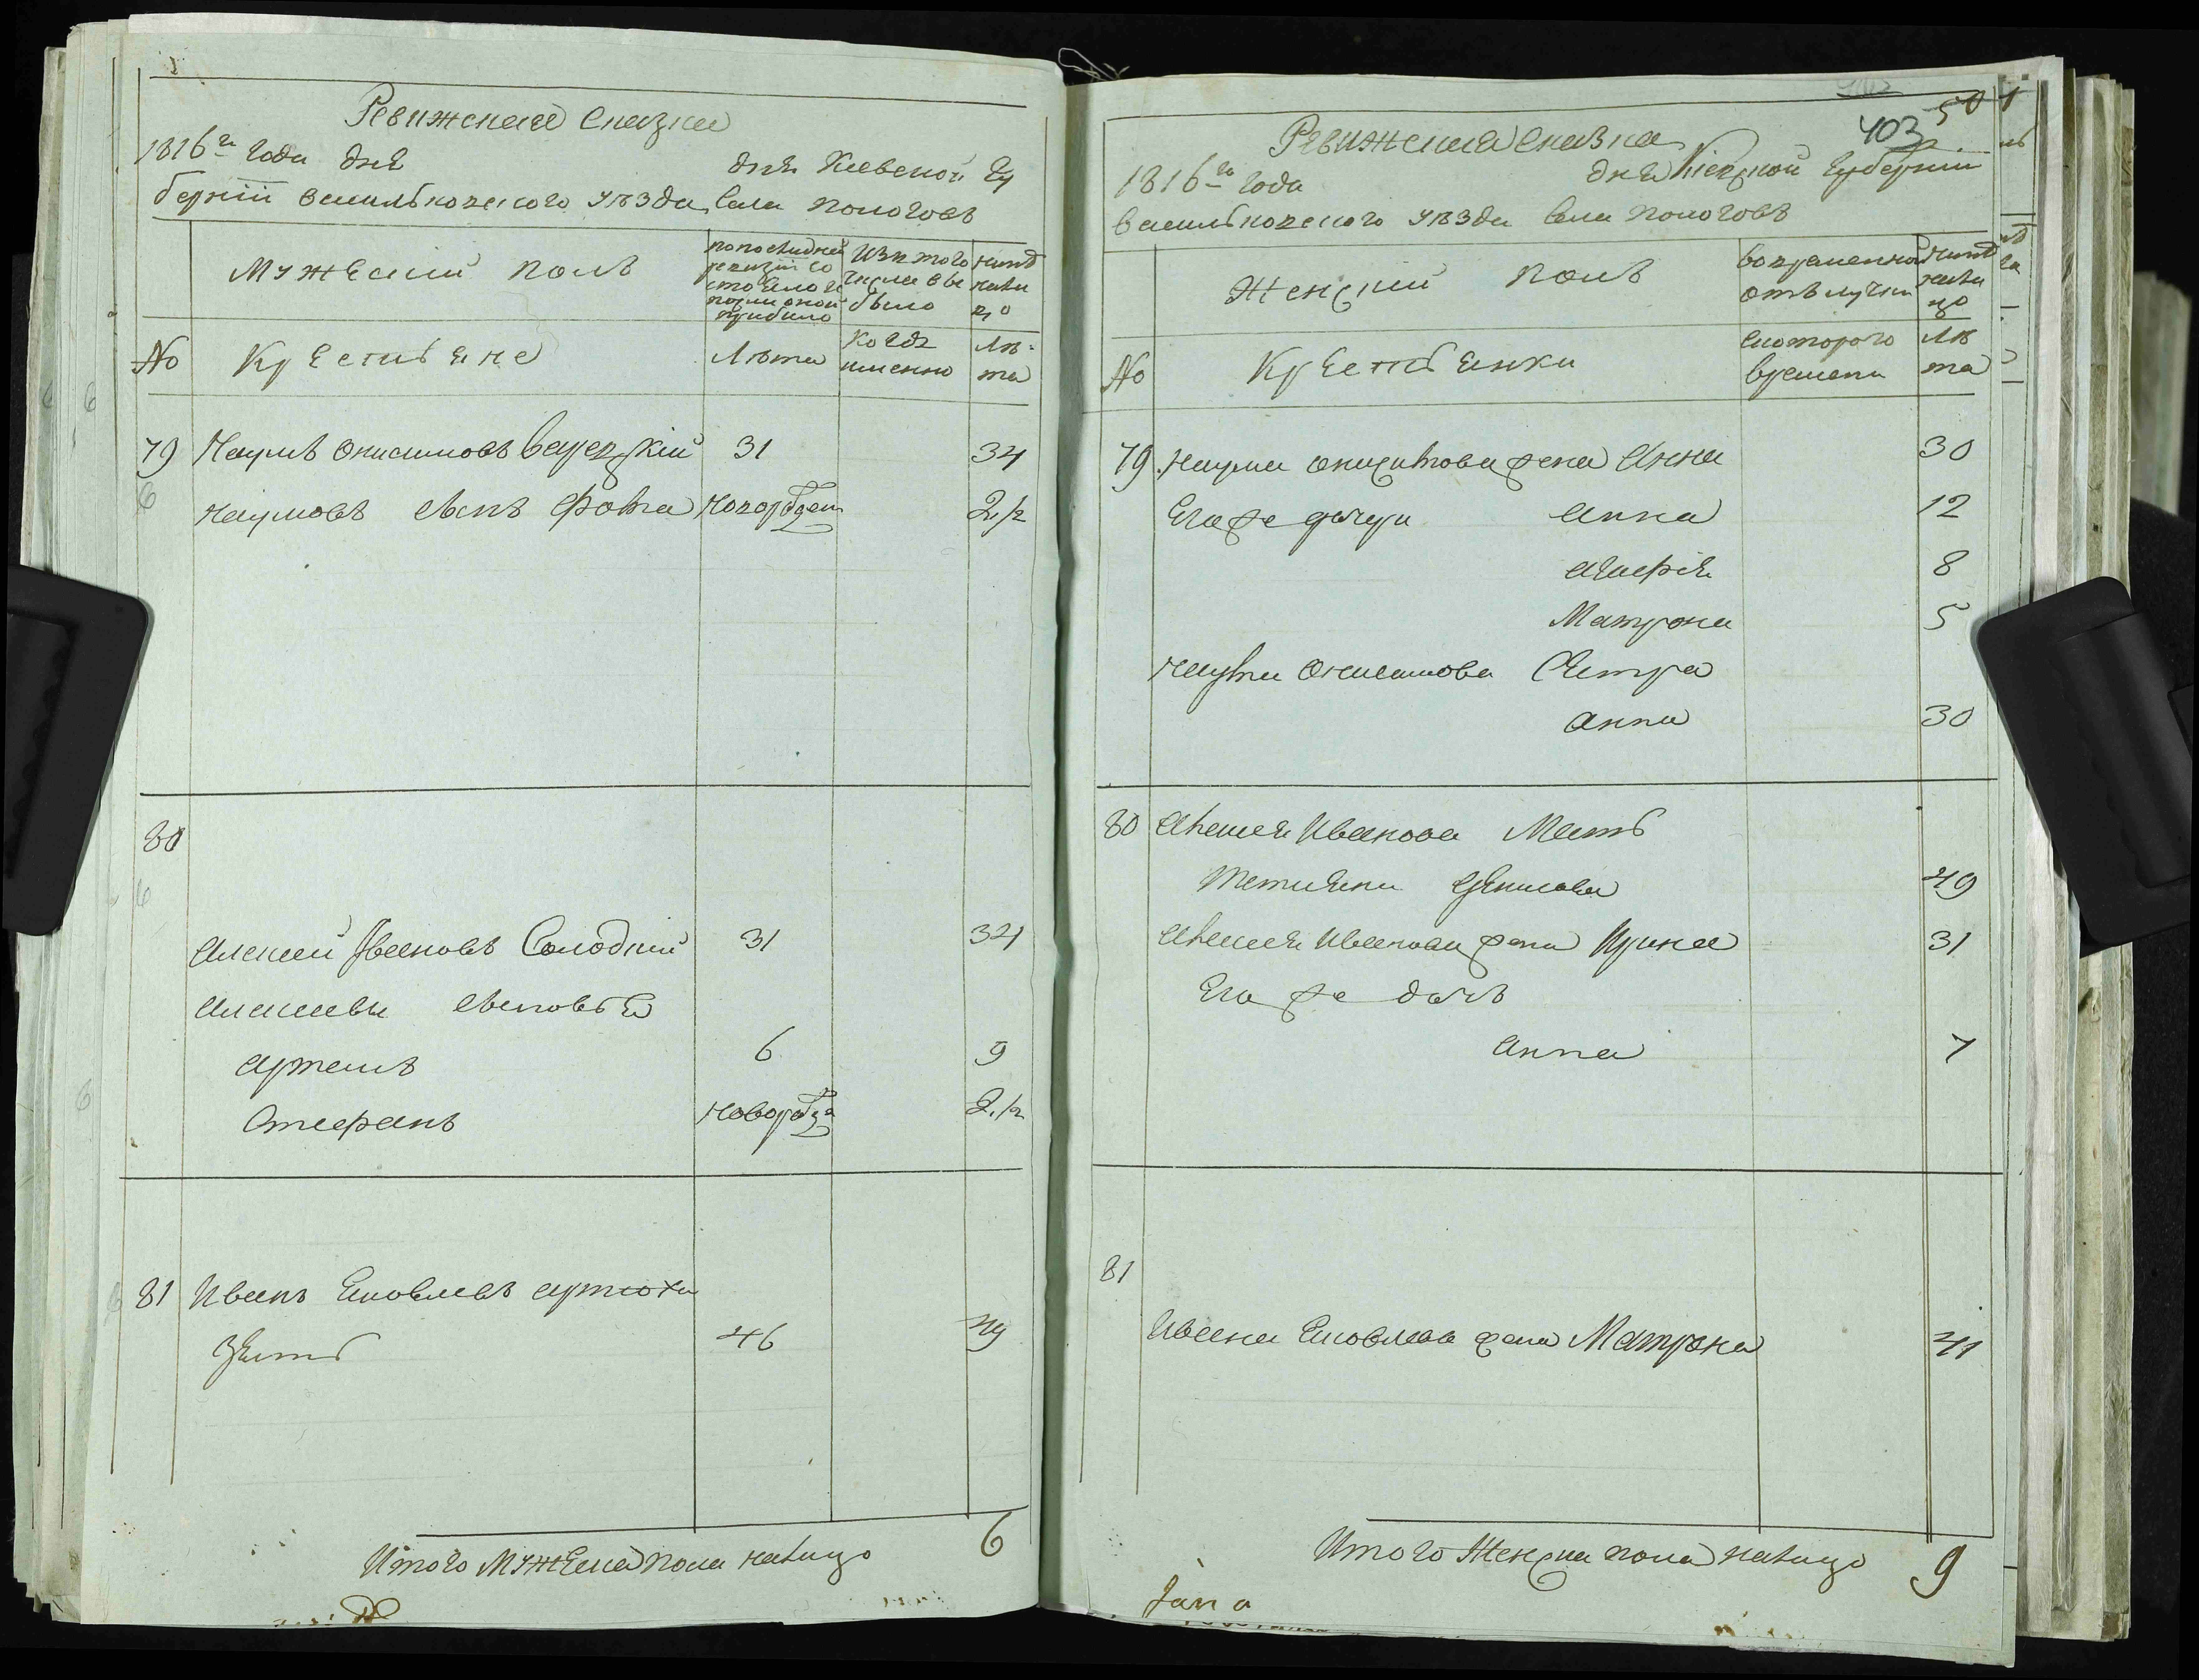 Ревижская Сказка
1816го Года дня дня Киевской Гу
берніи Васильковского уѣзда Села Пологовъ
Мужеский полъ
по последней ревизіи состояло и после оной прибыло
Изъ того числа выбыло
ныне налицо
No
Крестьяне
Лѣта
Когда имянно
Лѣта
79 Наумъ Онисимовъ 31 34
Наумовъ сынъ Фома новорожден 2 1/2
80
Алексей Ивановъ Солодкий 31 34
Алексеевы сыновья
Артемъ 6 9
Стефанъ новорожд 2 1/2
81 Иванъ Яковлевъ Артюха
Зять 46 49
Итого Мужеска пола налицо 6
403 50
Ревижская Сказка
1816го Года дня Кіевской Губерніи
Васильковского уѣзда Села Пологовъ
Женский полъ
во временной отълучки
ныне налицо
No
Крестьянки
с которого времени
Лѣта
79 Наума Онисимова жена Анна 30
Его же дочери Анна 12
Агафія 8
Матрона 5
Наума Онисимова Сестра
Анна 30
80 Алексея Иванова Мать
Татияна 49
Алексея Иванова жена Ирина 31
Его же дочь
Анна 7
81
Ивана Яковлева жена Матрона 41
Итого Женска пола налицо 9
Jana